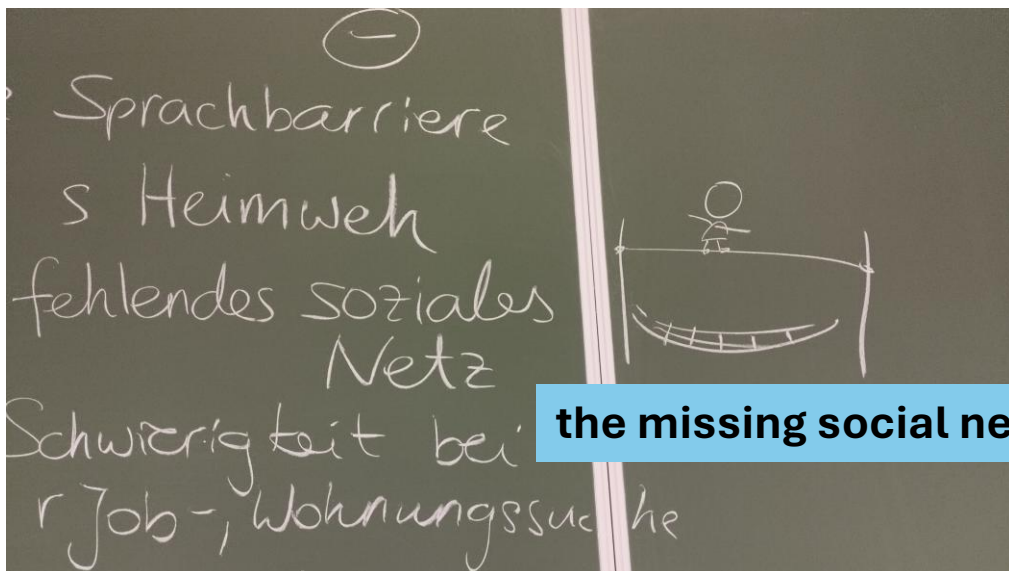 Sprachbarriere
s Heimweh
fehlendes soziales
Netz
Schwierigkeit bei
r Job-, Wohnungssuche
the missing social ne